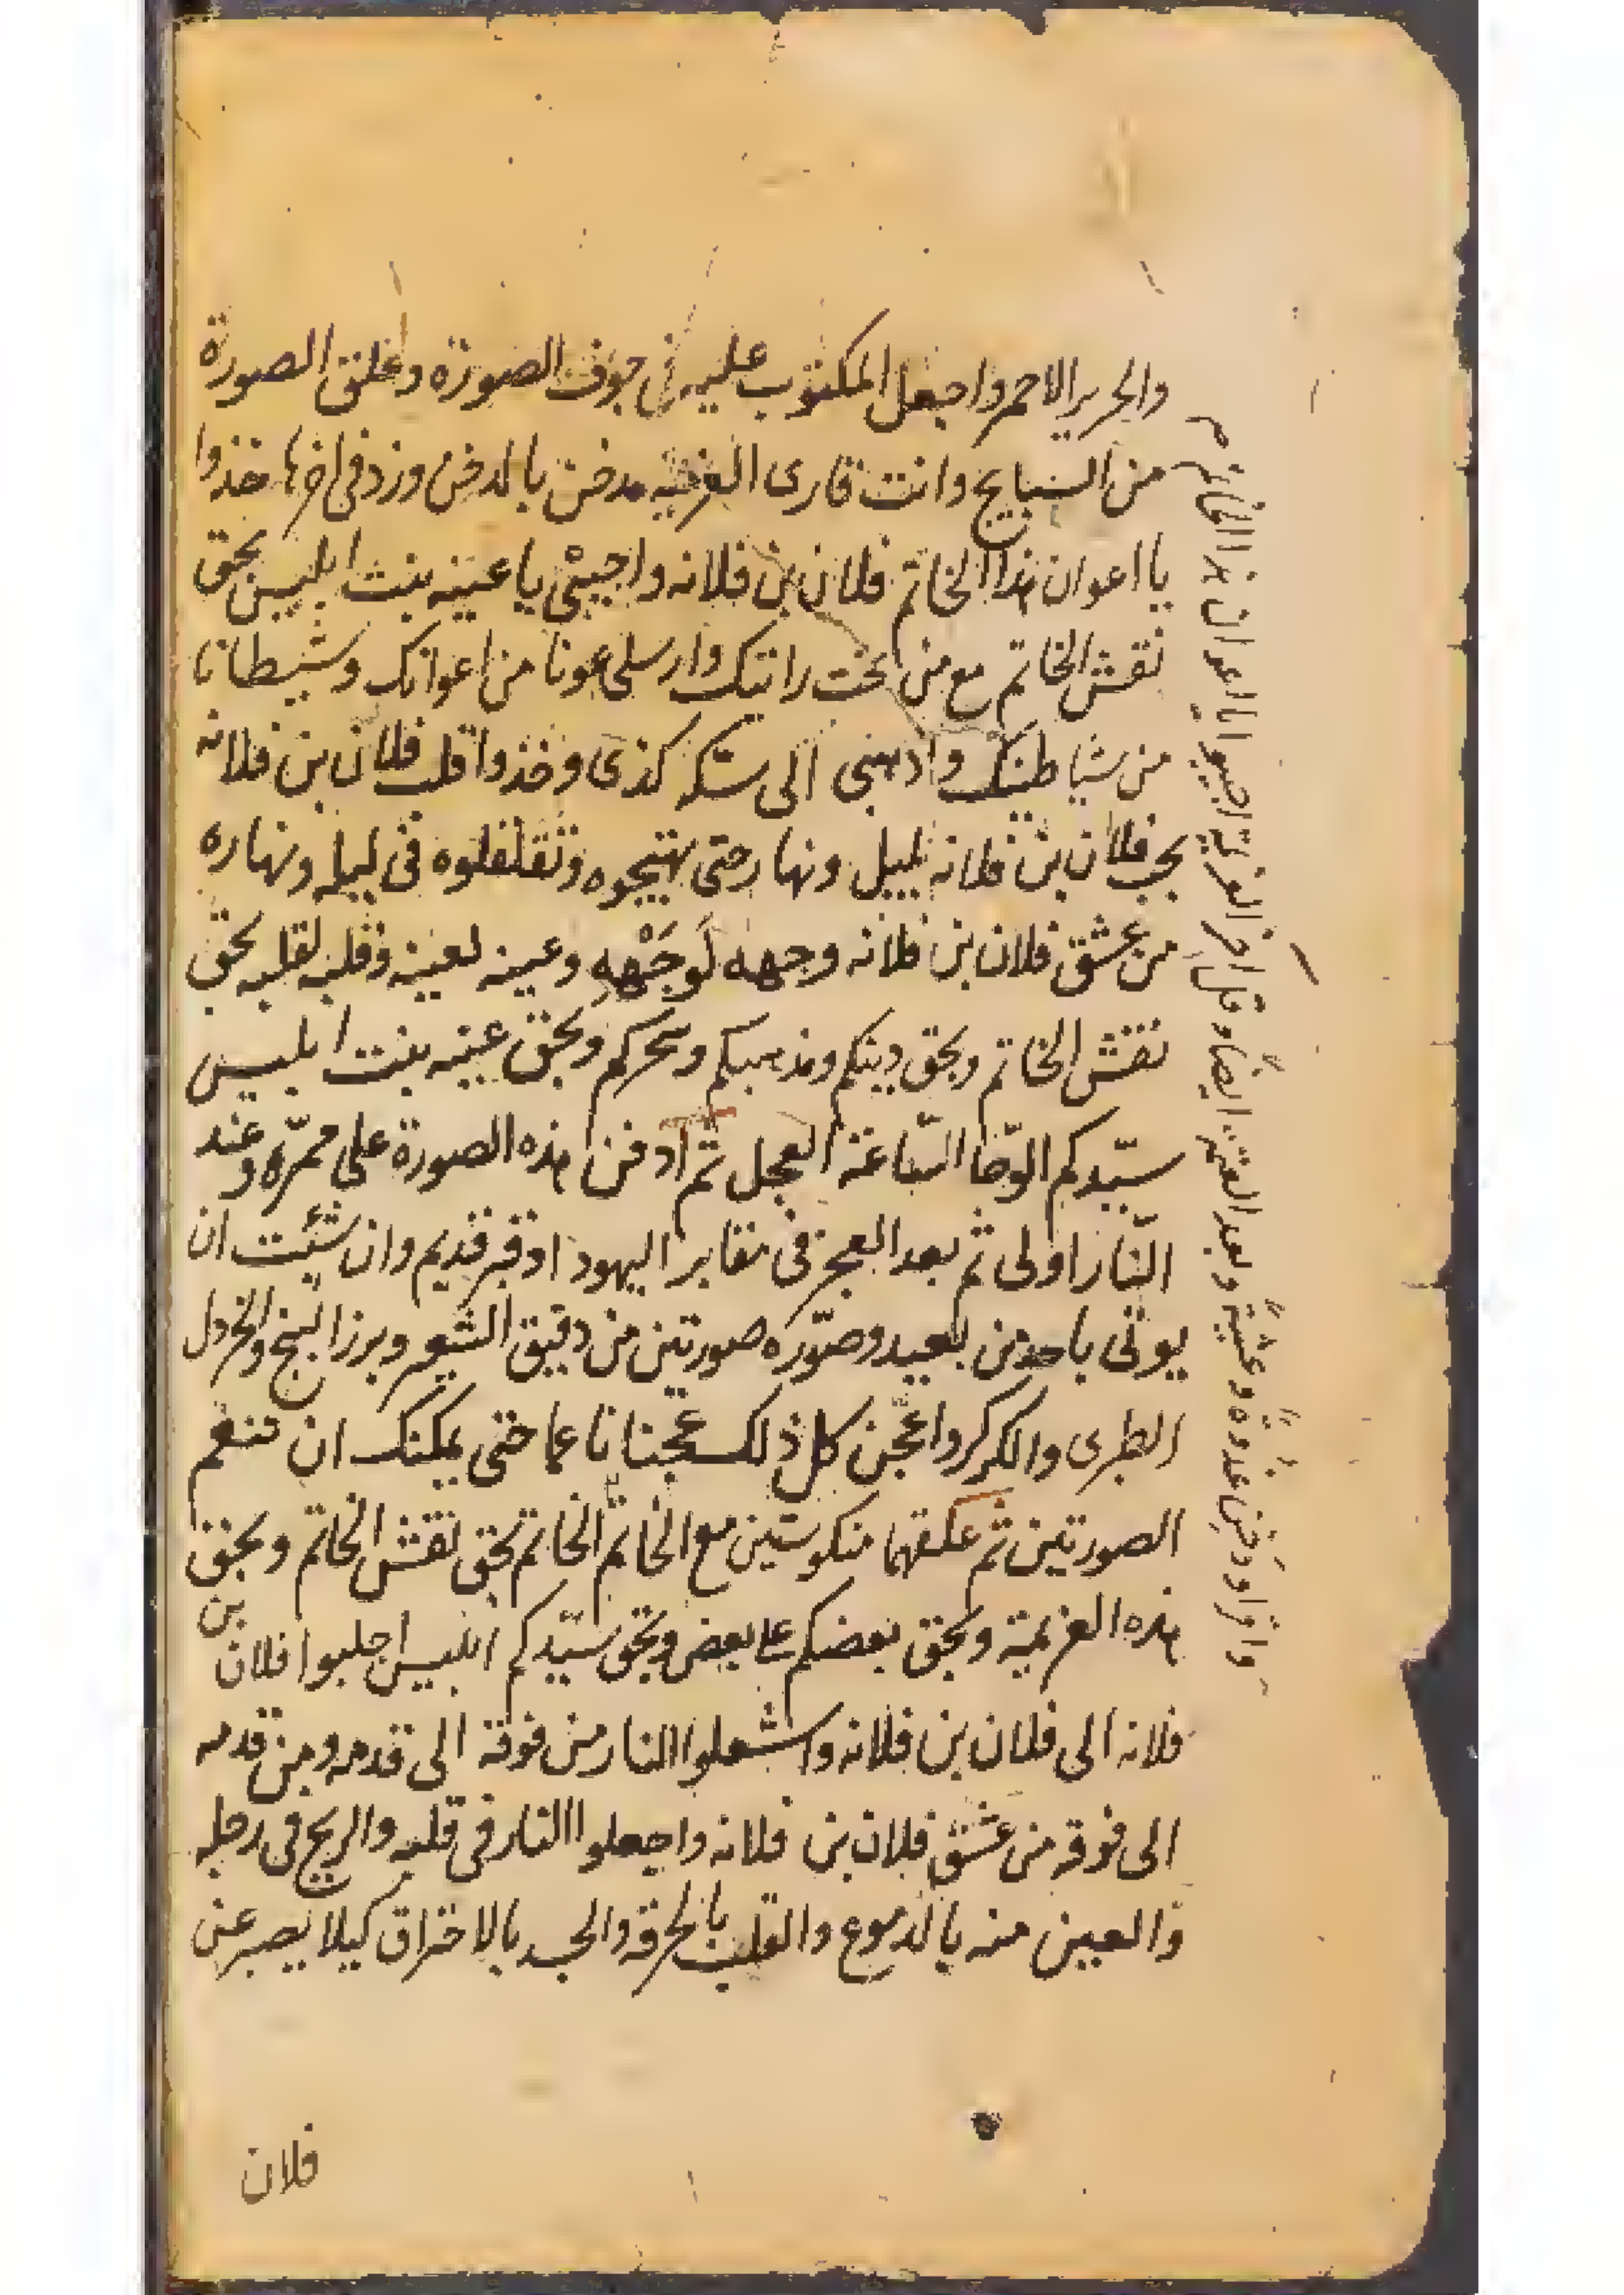 والحرير الاحمر واجعل المكتوب عليه فى جوف الصورة وعلق الصورة
من السبايح وانت قارى العزيمه مدخن بالدخن وزد فى اخرها خذوا
يا اعوان هذا الخاتم فلان بن فلانه واجيبى يا عينه بنت ابليس بحق
نقش الخاتم مع من تحت رايتك وارسلى عونا من اعوانك وشيطانا
من شياطينك واذهبى الى كذى وخذوا قلب فلان بن فلانه
بحب فلان بن فلانه بليل ونهار حتى تهيجوه وتقلقلوه فى ليله ونهاره
من عشق فلان بن فلانه وجهه لوَجَهْهِ وعينه لعينه وقلبه لقلبه بحق
نقش الخاتم وبحق دينكم ومذهبكم وسحركم وبحق عينه بنت ابليس
سيّدكم الوّحا السّاعة العجل ثم ادفن هذه الصورة على ممرّه وعند
النّار اولى ثم بعد العجز فى مقابر اليهود او قبر قديم وان شئت ان
يوتى باحد من بعيد وصوّره صورتين من دقيق الشعير وبرز البنج والخردل
الطرى والكركر واعجن كل ذلك عجنا ناعما حتى يمكنك ان تنعم
الصورتين ثم علقهما منكوستين مع الخاتم الخاتم بحق نقش الخاتم وبحق
هذه العزيمة وبحق بعضكم على بعض وبحق سيّدكم ابليس اجلبوا فلان بن
فلانه الى فلان بن فلانه واشعلوا النار من فوقه الى قدمه ومن قدمه
الى فوقه من عشق فلان بن فلانه واجعلوا النار فى قلبه والريح فى رجله
والعين منه بالدموع والقلب بالحرقه والجسد بالاحتراق كيلا يصبر عن
فلان